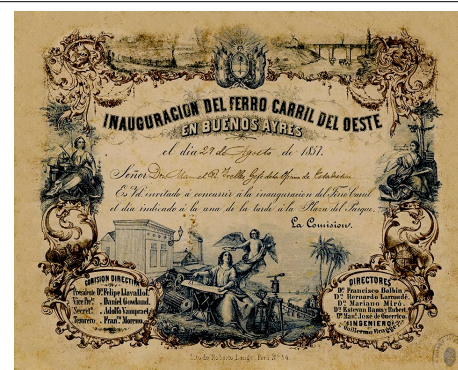 INAUGURACION DEL FERRO CARRIL DEL OESTE
EN BUENOS AYRES
el dia 29 de Agosto de 1857.
Señor Dn. Manuel R. Trelles Gefe de la Oficina de Estadistica
Es Vd. invitado à concurrir à la inauguracion del Ferro Carril
el dia indicado à la una de la tarde à la Plaza del Parque.
La Comision.
COMISION DIRECTIVA
Presidente Dn. Felipe Llavallol.
Vice Pte. " Daniel Gowland.
Secret. " Adolfo Vanpraet.
Tesorero " Fran. Moreno.
DIRECTORES
Dn. Francisco Balbin
Dn. Bernardo Larroudé.
Dn. Mariano Miró.
Dn. Estevan Rams y Rubert.
Dn. Man. José de Guerrico.
INGENIERO
Guillermo Bragge
Lito de Rodolfo Lange, Perú Nº 54.